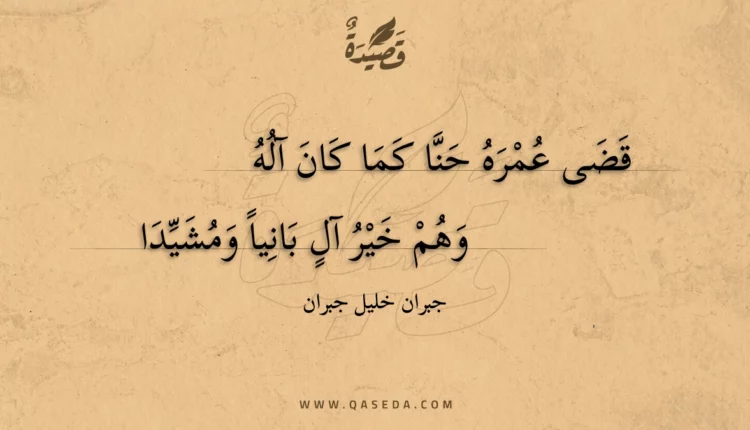 قَصِيدَةٌ
قَضَى عُمْرَهُ حَنَّا كَمَا كَانَ آلُهُ
وَهُمْ خَيْرُ آلٍ بَانِياً وَمُشَيِّدَا
جبران خليل جبران
WWW.QASEDA.COM